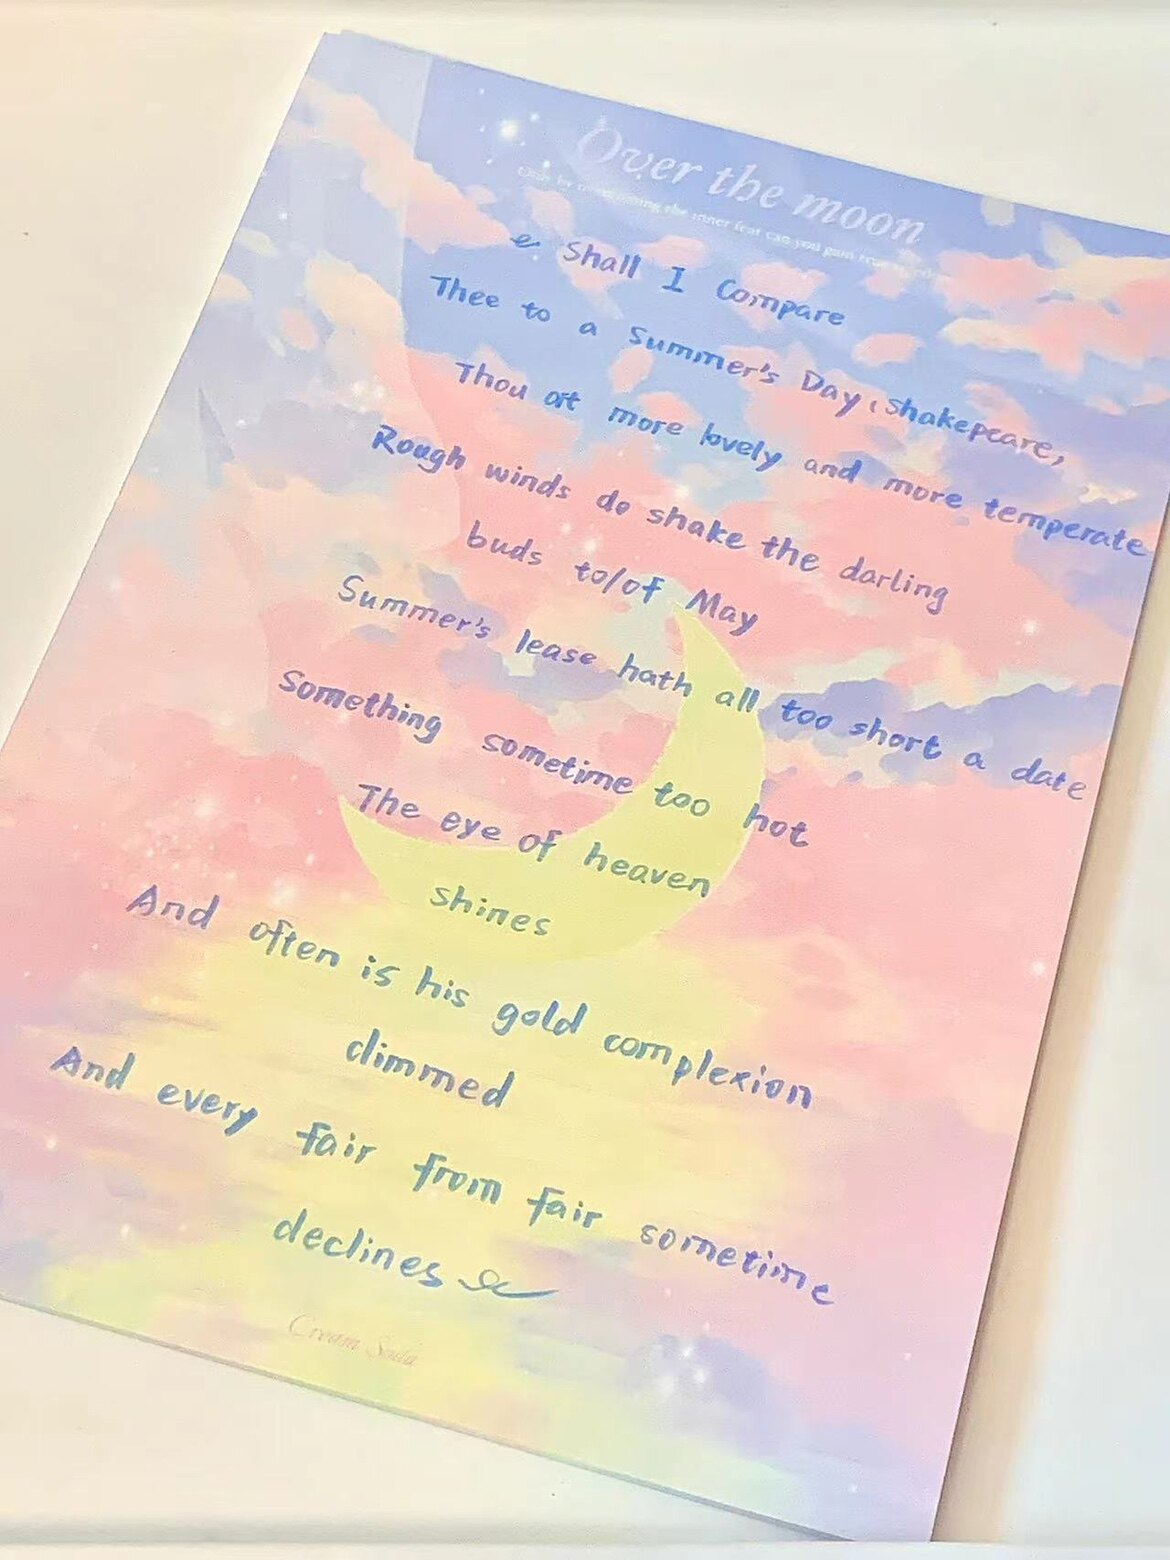 Over the moon
the inner fear can you gain
Shall I Compare
Thee to a Summer's Day, Shakepeare,
Thou art more lovely and more temperate
Rough winds do shake the darling
buds to/of May
Summer's lease hath all too short a date
Something sometime too hot
The eye of heaven
shines
And often is his gold complexion
dimmed
And every fair from fair sometime
declines
Cream Soda